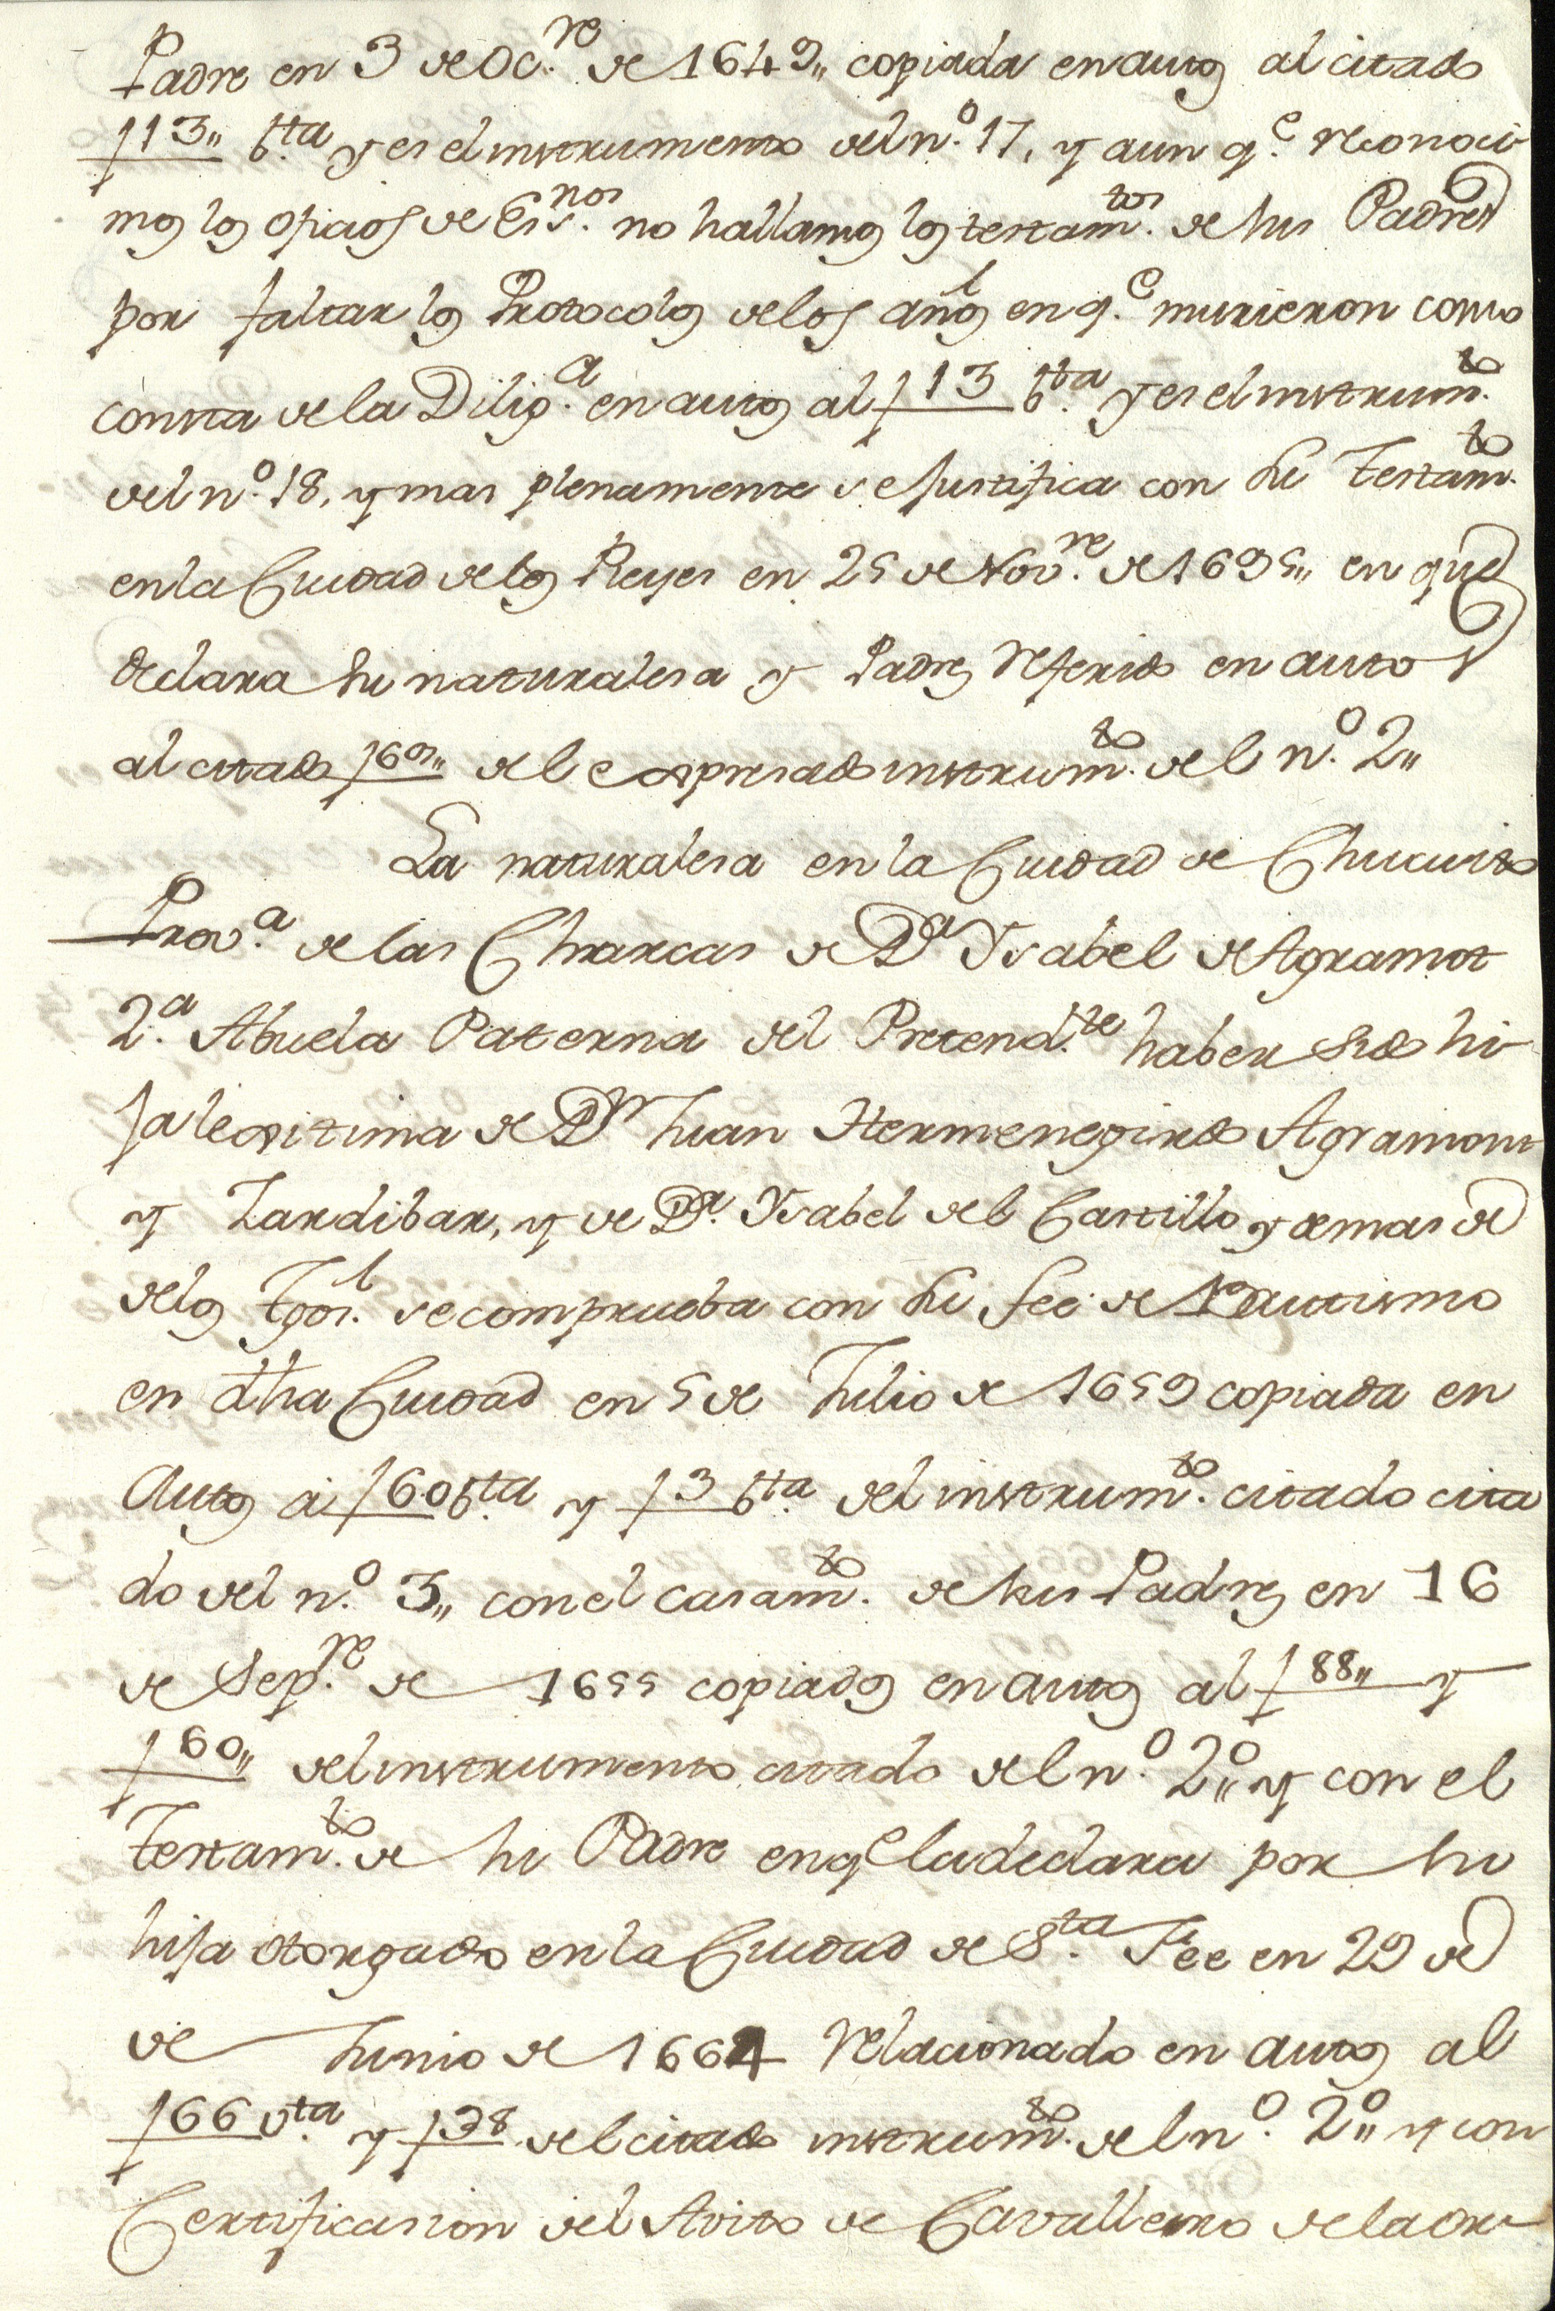 Padre en 3 de Oc.re de 1649,, copiada en autos al citado
f 13,, bta y es el instrumento del n.o 17, y aun q.e reconoci
mos los oficios de Ess.nos no hallamos los testam.tos de sus Padres
por faltar los Protocolos de los años en q.e murieron como
consta de la Dilig.a en autos al f 13 bta y es el instrum.to
del n.o 18, y mas plenamente se justifica con su Testam.to
en la Ciudad de los Reyes en 25 de Nov.re de 1695,, en que
declara su naturalesa y Padres referido en autos
al citado f 69,, del expresado instrum.to del n.o 2,,
La naturalesa en la Ciudad de Chucuito
Prov.a de las Charcas de Da Ysabel de Agramot
2.a Abuela Paterna del Pretend.te haber sido hi
ja lexitima de Dn Juan Hermenegirdo Agramont
y Zardibar, y de Da. Ysabel del Castillo y demas de
de los Tgos. se comprueba con su fee de Bautismo
en dha Ciudad en 5 de Julio de 1659 copiada en
Autos a f 60 bta y f 3 bta del instrum.to citado cita
do del n.o 3,, con el casam.to de sus Padres en 16
de Sep.re de 1655 copiados en autos al f 88,, y
f 60,, del instrumento citado del n.o 2o,, y con el
Testam.to de su Padre en qe la declara por su
hija otorgado en la Ciudad de S.ta Fee en 29 de
de Junio de 1664 relacionado en autos al
f 66 vta y f 38 del citado instrum.to del n.o 2o,, y con
Certificasion del Avito de Cavallero de la Or